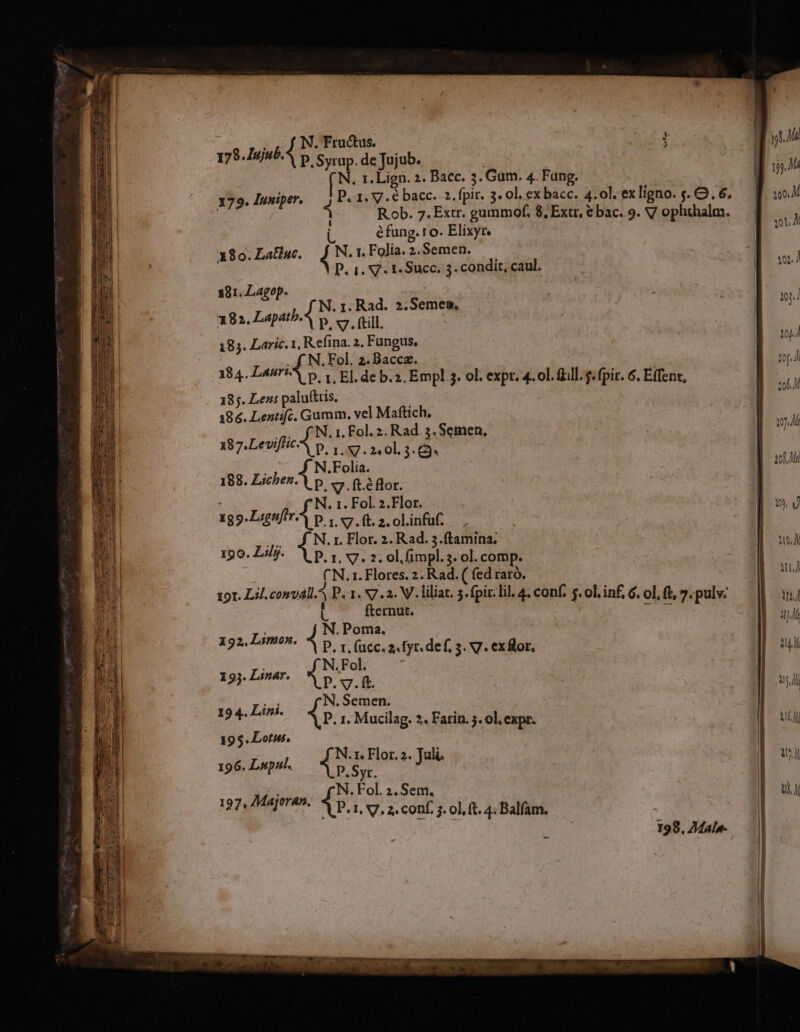 178. Jujub. { N. Fructus.
P. Syrup. de Jujub.
{ N. 1. Lign. 2. Bacc. 3. Gum. 4. Fung.
179. Juniper. P. 1. 🜄. è bacc. 2. ſpir. 3. ol. ex bacc. 4. ol. ex ligno. 5. 🜔. 6.
Rob. 7. Extr. gummoſ. 8. Extr. è bac. 9. 🜄 ophthalm.
è fung. 10. Elixyr.
180. Lactuc. { N. 1. Folia. 2. Semen.
P. 1. 🜄. 1. Succ. 3. condit. caul.
181. Lagop.
182. Lapath. { N. 1. Rad. 2. Semen.
P. 🜄. ſtill.
183. Laric. 1. Reſina. 2. Fungus.
{ N. Fol. 2. Baccæ.
184. Lauri. P. 1. El. de b. 2. Empl 3. ol. expr. 4. ol. ſtill. 5. ſpir. 6. Eſſent.
185. Lens paluſtris.
186. Lentiſc. Gumm. vel Maſtich.
187. Leviſtic. { N. 1. Fol. 2. Rad. 3. Semen.
P. 1. 🜄. 2. ol. 3. 🜔.
188. Lichen. { N. Folia.
P. 🜄. ſt. è flor.
189. Liguſtr. { N. 1. Fol. 2. Flor.
P. 1. 🜄. ſt. 2. ol. infuſ.
190. Lilij. { N. 1. Flor. 2. Rad. 3. ſtamina.
P. 1. 🜄. 2. ol. ſimpl. 3. ol. comp.
{ N. 1. Flores. 2. Rad. ( ſed rarò.
191. Lil. convall. P. 1. 🜄. 2. V. liliat. 3. ſpir. lil. 4. conf. 5. ol. inf. 6. ol. ſt. 7. pulv.
ſternut.
192. Limon. { N. Poma.
P. 1. ſucc. 2. ſyr. de ſ. 3. 🜄. ex flor.
193. Linar. { N. Fol.
P. 🜄. ſt.
194. Lini. { N. Semen.
P. 1. Mucilag. 2. Farin. 3. ol. expr.
195. Lotus.
196. Lupul. { N. 1. Flor. 2. Juli.
P. Syr.
197. Majoran. { N. Fol. 2. Sem.
P. 1. 🜄. 2. conf. 3. ol. ſt. 4. Balſam.
198. Mala-